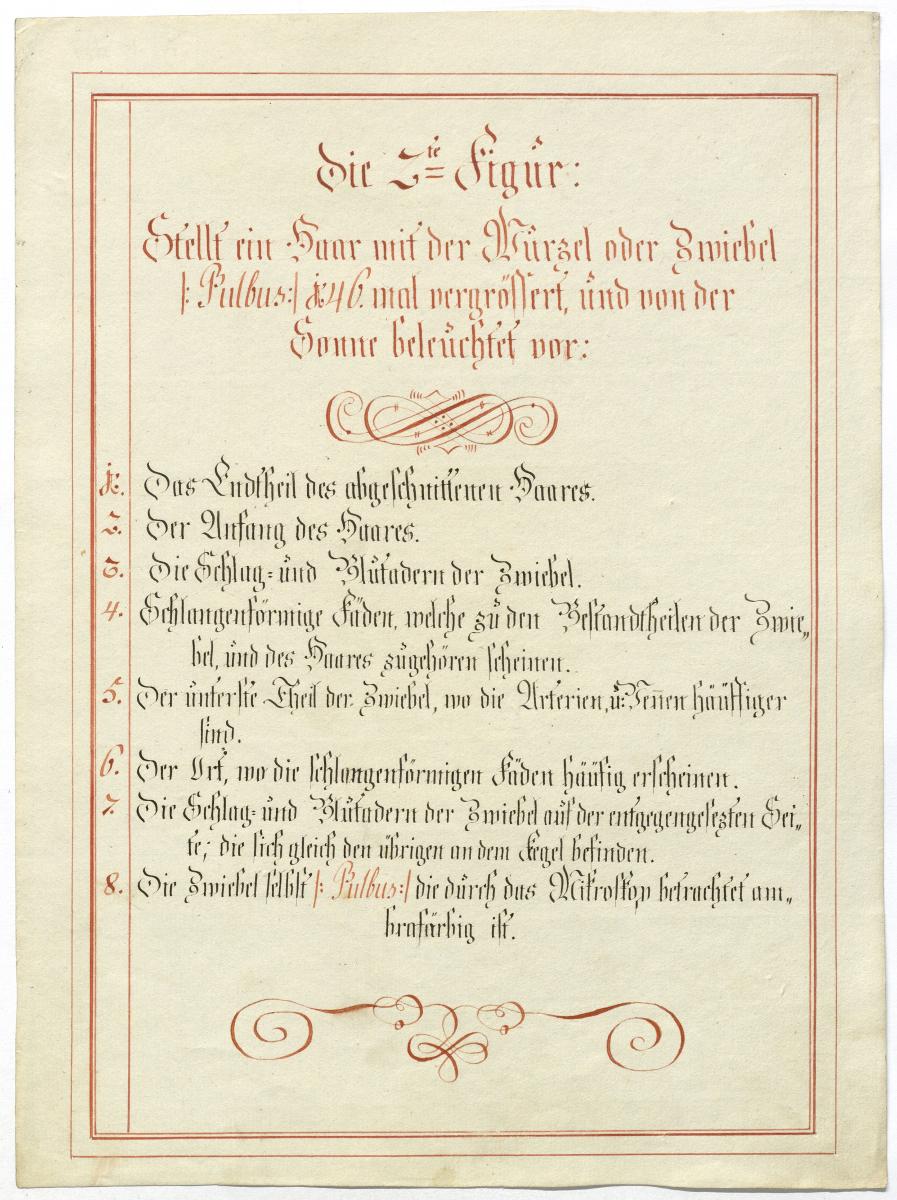 Die 2te Figur:
Stellt ein Haar mit der Wurzel oder Zwiebel
|: Bulbus :| 146. mal vergrössert, und von der
Sonne beleuchtet vor:
1. Das Endtheil des abgeschnittenen Haares.
2. Der Anfang des Haares.
3. Die Schlag= und Blutadern der Zwiebel.
4. Schlangenförmige Fäden, welche zu den Bestandtheilen der Zwie„
bel, und des Haares zugehören scheinen.
5. Der unterste Theil der Zwiebel, wo die Arterien, u: Venen häuffiger
sind.
6. Der Ort, wo die schlangenförmigen Fäden häufig erscheinen.
7. Die Schlag= und Blutadern der Zwiebel auf der entgegengesezten Sei„
te; die sich gleich den übrigen an dem Kegel befinden.
8. Die Zwiebel selbst |: Bulbus :| die durch das Mikroskop betrachtet am„
brafärbig ist.